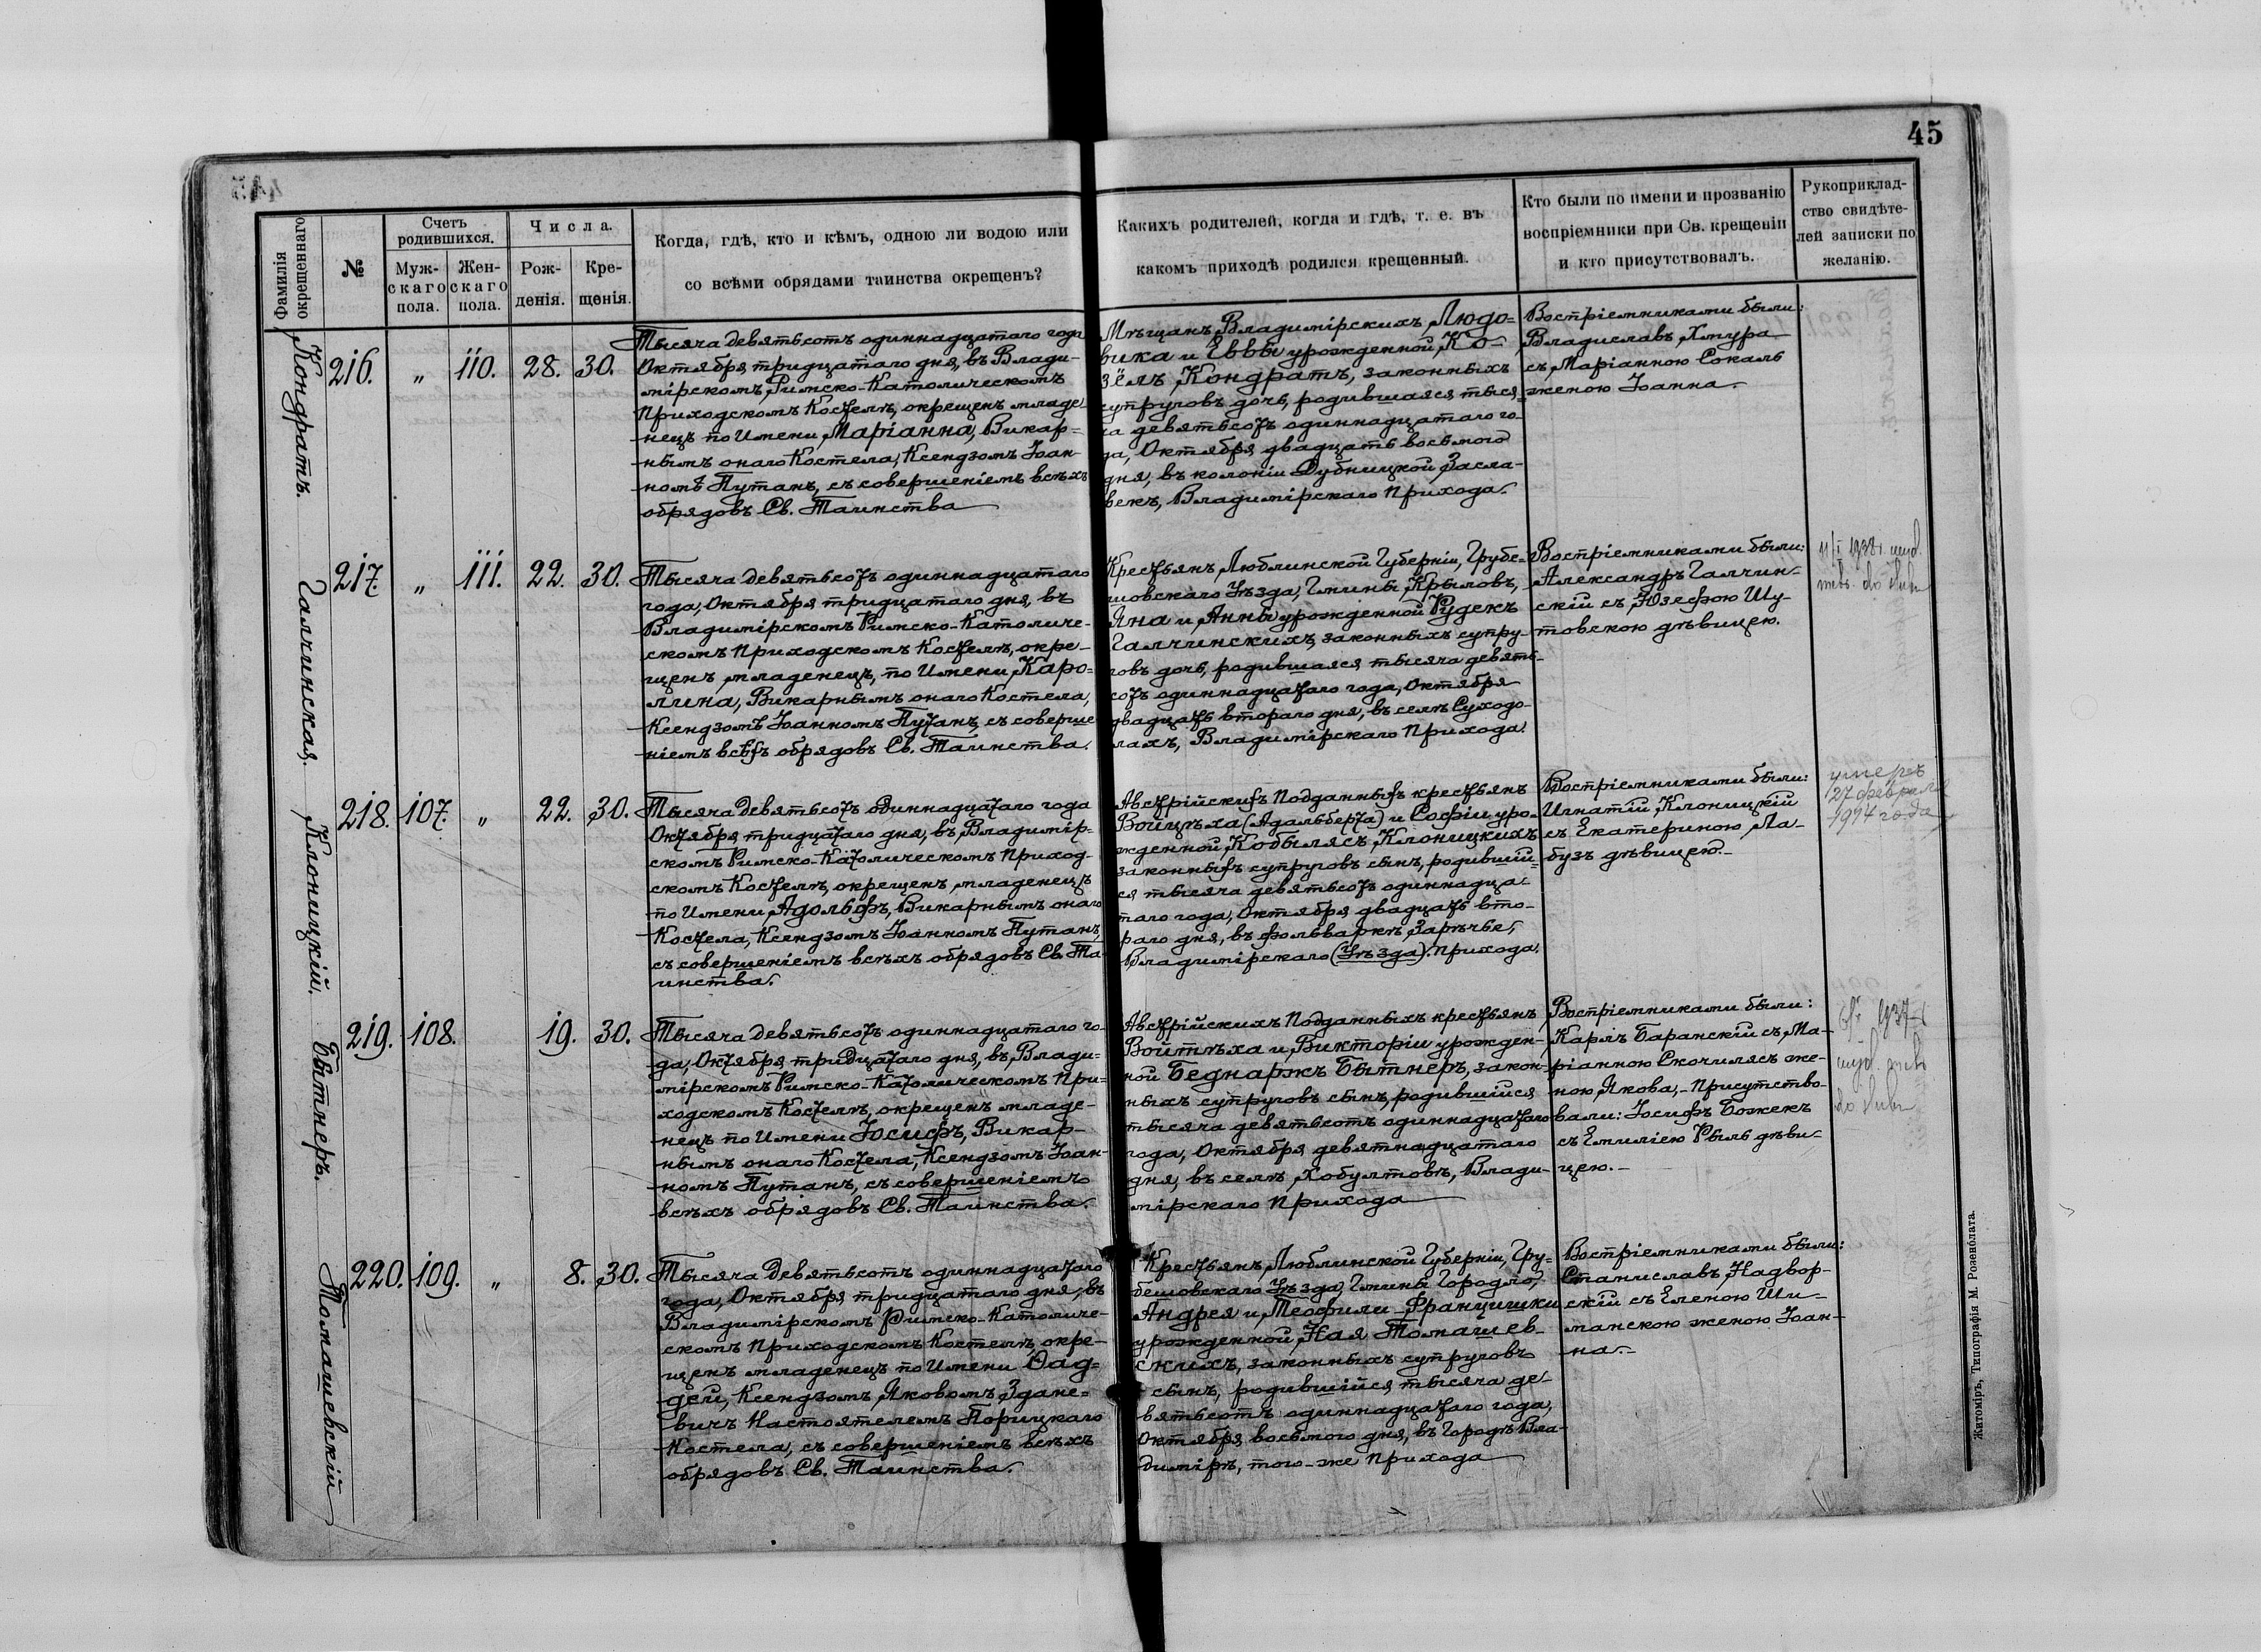 45
Фамилія окрещеннаго
№
Счетъ родившихся.
Муж-
скаго
пола.
Жен-
скаго
пола.
Числа.
Рож-
денія.
Кре-
щенія.
Когда, гдѣ, кто и кѣмъ, одною ли водою или
со всѣми обрядами таинства окрещенъ?
Какихъ родителей, когда и гдѣ, т. е. въ
какомъ приходѣ родился крещенный.
Кто были по имени и прозванію
воспріемники при Св. крещеніи
и кто присутствовалъ.
Рукоприклад-
ство свидѣте-
лей записки по
желанію.
Кондратъ.
216. „ 110. 28. 30.
Тысяча девятьсотъ одиннадцатаго года
Октября тридцатаго дня, въ Влади-
мірскомъ Римско-Католическомъ
Приходскомъ Костелѣ, окрещенъ младе-
нецъ по Имени Маріанна, Викар-
нымъ онаго Костела, Ксендзомъ Іоан-
номъ Путанъ, съ совершеніемъ всѣхъ
обрядовъ Св. Таинства
Мѣщанъ Владимірскихъ Людо-
вика и Еввы урожденной Ко-
зёлъ Кондратъ, законныхъ
супруговъ дочь, родившаяся тыся-
ча девятьсотъ одиннадцатаго го-
да, Октября двадцать восьмого
дня, въ колоніи Дубницкой Засла-
векъ, Владимірскаго Прихода.
Востріемниками были:
Владиславъ Хмура
съ Маріанною Сокалъ
женою Іоанна.
Галчинская.
217. „ 111. 22. 30.
Тысяча девятьсотъ одиннадцатаго
года, Октября тридцатаго дня, въ
Владимірскомъ Римско-Католиче-
скомъ Приходскомъ Костелѣ, окре-
щенъ младенецъ, по Имени Каро-
лина, Викарнымъ онаго Костела,
Ксендзомъ Іоанномъ Путанъ, съ соверше
ніемъ всѣхъ обрядовъ Св. Таинства.
Крестьянъ Люблинской Губерніи, Грубе-
шовскаго Уѣзда, Гмины Крыловъ,
Яна и Анны урожденной Рудекъ
Галчинскихъ, законныхъ супру-
говъ дочь, родившаяся тысяча девять-
сотъ одиннадцатаго года, Октября
двадцать второго дня, въ селѣ Суходо-
лахъ, Владимірскаго Прихода.
Востріемниками были:
Александръ Галчин-
скій съ Юзефою Шу-
товскою дѣвицею.
11/I 1938 r. wyd.
do ślubu
Клоницкій.
218. 107. „ 22. 30.
Тысяча девятьсотъ одиннадцатаго года
Октября тридцатаго дня, въ Владимір-
скомъ Римско-Католическомъ Приход-
скомъ Костелѣ, окрещенъ младенецъ
по Имени Адольфъ, Викарнымъ онаго
Костела, Ксендзомъ Іоанномъ Путанъ,
съ совершеніемъ всѣхъ обрядовъ Св. Та-
инства.
Австрійскихъ Подданныхъ крестьянъ
Войцѣха (Адальберта) и Софіи уро-
жденной Кобылясъ Клоницкихъ
законныхъ супруговъ сынъ, родившій-
ся тысяча девятьсотъ одиннадца-
таго года, Октября двадцать вто-
раго дня, въ фольваркѣ Зарѣчье,
Владимірскаго (Уѣзда). Прихода.
Востріемниками были:
Игнатій Клоницкій
съ Екатериною Ла-
бузъ дѣвицею.
умеръ
27 февраля
1914 года
Бытнеръ.
219. 108. 19. 30.
Тысяча девятьсотъ одиннадцатаго го-
да, Октября тридцатаго дня, въ Влади-
мірскомъ Римско-Католическомъ При-
ходскомъ Костелѣ, окрещенъ младе-
нецъ по Имени Іосифъ, Викар-
нымъ онаго Костела, Ксендзомъ Іоан-
номъ Путанъ, съ совершеніемъ
всѣхъ обрядовъ Св. Таинства.
Австрійскихъ Подданныхъ крестьянъ
Войтѣха и Викторіи урожден-
ной Беднаржъ Бытнеръ, закон-
ныхъ супруговъ сынъ, родившійся
тысяча девятьсотъ одиннадцатаго
года, Октября девятнадцатаго
дня, въ селѣ Хобултовѣ, Влади-
мірскаго Прихода
Востріемниками были:
Карлъ Баранскій съ Ма-
ріанною Скочилясъ же-
ною Якова, - Присутство-
вали: Іосифъ Божекъ
съ Емиліею Рыль дѣви-
цею.
1937 r
wyd.
do ślubu
Томашевскій
220. 109. „ 8. 30.
Тысяча девятьсотъ одиннадцатаго
года, Октября тридцатаго дня, въ
Владимірскомъ Римско-Католиче-
скомъ Приходскомъ Костелѣ, окре-
щенъ младенецъ по Имени Фад-
дей, Ксендзомъ Яковомъ Здане-
вичъ Настоятелемъ Порицкаго
Костела, съ совершеніемъ всѣхъ
обрядовъ Св. Таинства.
Крестьянъ Люблинской Губерніи, Гру-
бешовскаго Уѣзда, Гмины Городло,
Андрея и Теофили-Францишки
урожденной Ная Томашев-
скихъ, законныхъ супруговъ
сынъ, родившійся тысяча де-
вятьсотъ одиннадцатаго года,
Октября восьмого дня, въ Городѣ Вла-
димірѣ, того-же Прихода
Востріемниками были:
Станиславъ Надвор-
скій съ Еленою Ши-
манскою женою Іоан-
на.
Житоміръ, Типографія М. Розенблата.